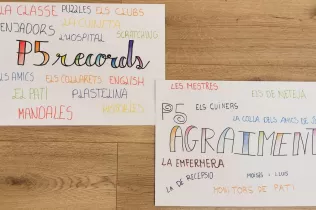 LA CLASSE PUZZLES ELS CLUBS
MENJADORS LA CUINETA SCRATCHING
L'HOSPITAL
P5 records
ELS AMICS ELS COLLARETS ENGLISH
EL PATI PLASTELINA
MANDALES
LES MESTRES ELS DE NETEJA
P5 ELS CUINERS
LA COLLA DELS AMICS DE
AGRAIMENT
LA EMFERMERA
LA DE RECEPSIO MOISÉS I LLUIS
MONITORS DE PATI